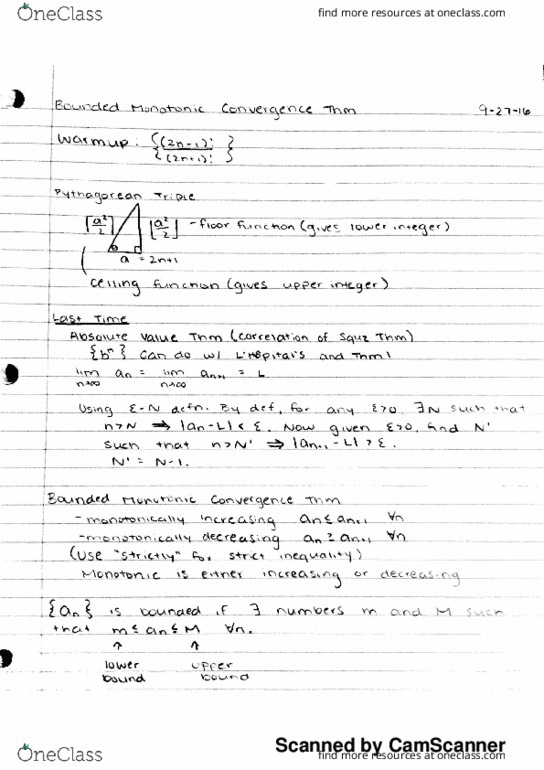 OneClass
find more resources at oneclass.com
Bounded Monotonic Convergence Thm 9-27-16
Warmup: {(2n-1)! / (2n+1)!}
Pythagorean Triple
⌈a²/2⌉ ⌊a²/2⌋ - floor function (gives lower integer)
a = 2n+1
ceiling function (gives upper integer)
Last Time
Absolute Value Thm (correlation of Sqwz Thm)
{bⁿ} can do w/ L'Hopital's and Thm 1
lim n→∞ an = lim n→∞ an+1 = L
Using ε-N defn. By def, for any ε>0, ∃N such that
n>N ⇒ |an-L| < ε. Now given ε>0, find N'
such that n>N' ⇒ |an+1-L| > ε.
N' = N-1.
Bounded Monotonic Convergence Thm
- monotonically increasing an ≤ an+1 ∀n
- monotonically decreasing an ≥ an+1 ∀n
(Use "strictly" for strict inequality)
Monotonic is either increasing or decreasing
{an} is bounded if ∃ numbers m and M such
that m ≤ an ≤ M ∀n.
↑ ↑
lower upper
bound bound
Scanned by CamScanner
OneClass
find more resources at oneclass.com